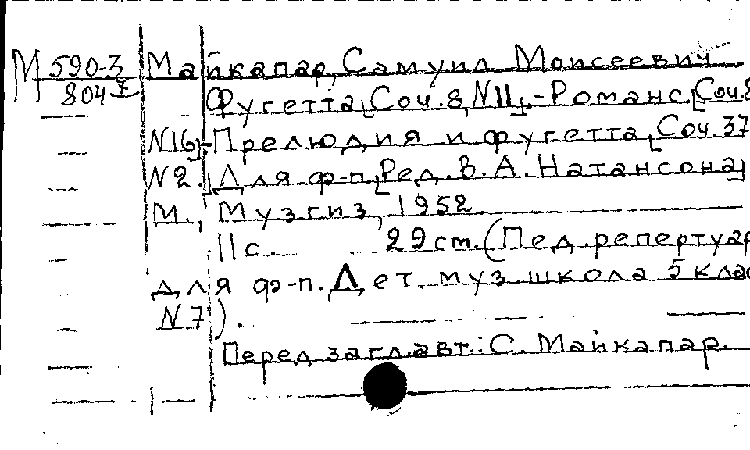 М 590-3 Майкапар, Самуил Моисеевич
804 Фугетта [Соч. 8, N 11]. - Романс [Соч. 8
N 16]. - Прелюдия и фугетта [Соч. 37
N 2. Для ф-п. [Ред. В. А. Натансона]
М., Музгиз, 1952.
11 с. 29 см. (Пед. репертуар
для ф-п. Дет. муз. школа 5 клас
N 7).
Перед загл. авт.: С. Майкапар.